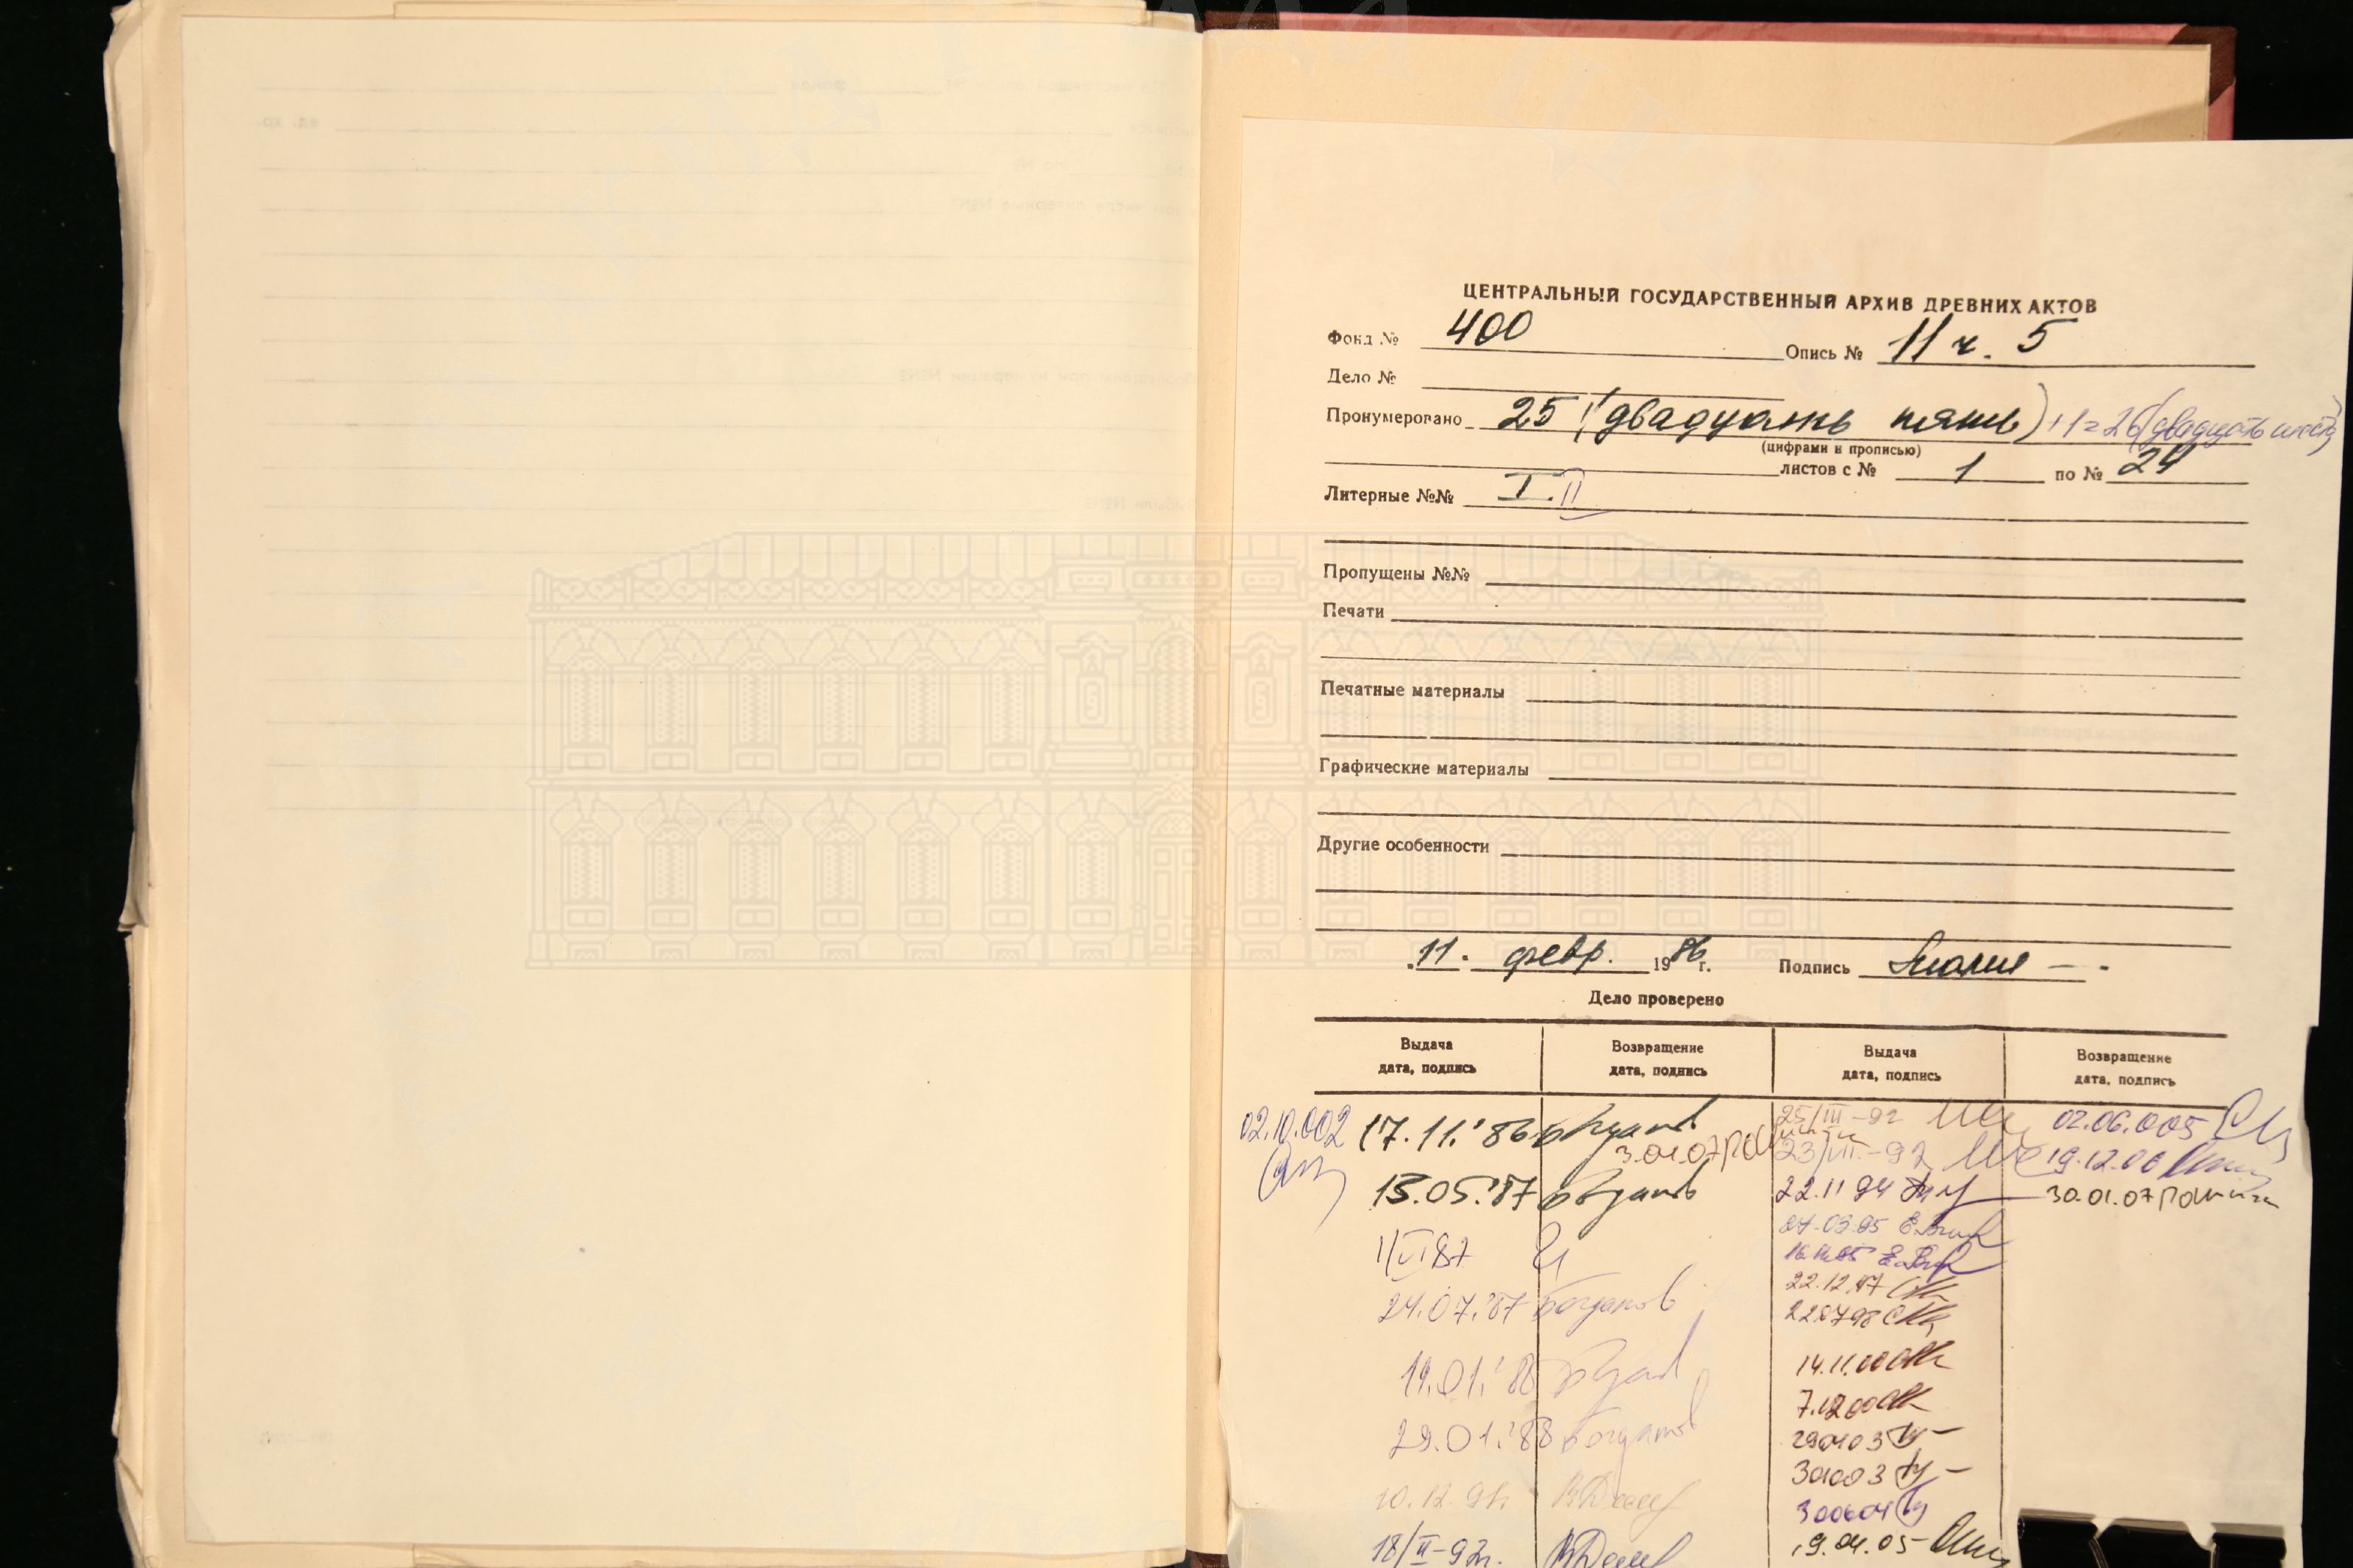 ЦЕНТРАЛЬНЫЙ ГОСУДАРСТВЕННЫЙ АРХИВ ДРЕВНИХ АКТОВ
Фонд № 400 Опись № 11 ч. 5
Дело №
Пронумеровано 25 (двадцать пять) +1=26 (двадцать шесть)
(цифрами и прописью)
листов с № 1 по № 24
Литерные №№ I. II
Пропущены №№
Печати
Печатные материалы
Графические материалы
Другие особенности
11. февр. 1986 г. Подпись
Дело проверено
Выдача дата, подпись Возвращение дата, подпись Выдача дата, подпись Возвращение дата, подпись
02.10.002 17.11.'86 25/III-92 02.06.005
3.01.07 23/VII-92 19.12.06
13.05.'87 22.11 94 30.01.07
1/VI 87
24.07.'87 Богданов 22.12.97
220798
19.01.'88 14.11.00
29.01.'88 Богданов 7.12 00
290103
10.12.91г. 300604
18/II-92г. 19.04.05